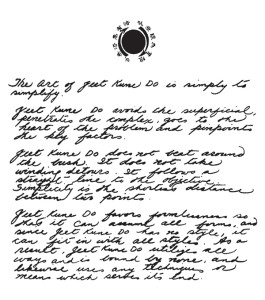 The Art of Jeet Kune Do is simply to
simplify.
Jeet Kune Do avoids the superficial,
penetrates the complex, goes to the
heart of the problem and pinpoints
the key factors.
Jeet Kune Do does not beat around
the bush. It does not take
winding detours. It follows a
straight line to the objective.
Simplicity is the shortest distance
between two points.
Jeet Kune Do favors formlessness so
that it can assume all forms, and
since Jeet Kune Do has no style, it
can fit in with all styles. As a
result, Jeet Kune Do utilizes all
ways and is bound by none, and
likewise uses any techniques or
means which serves its end.